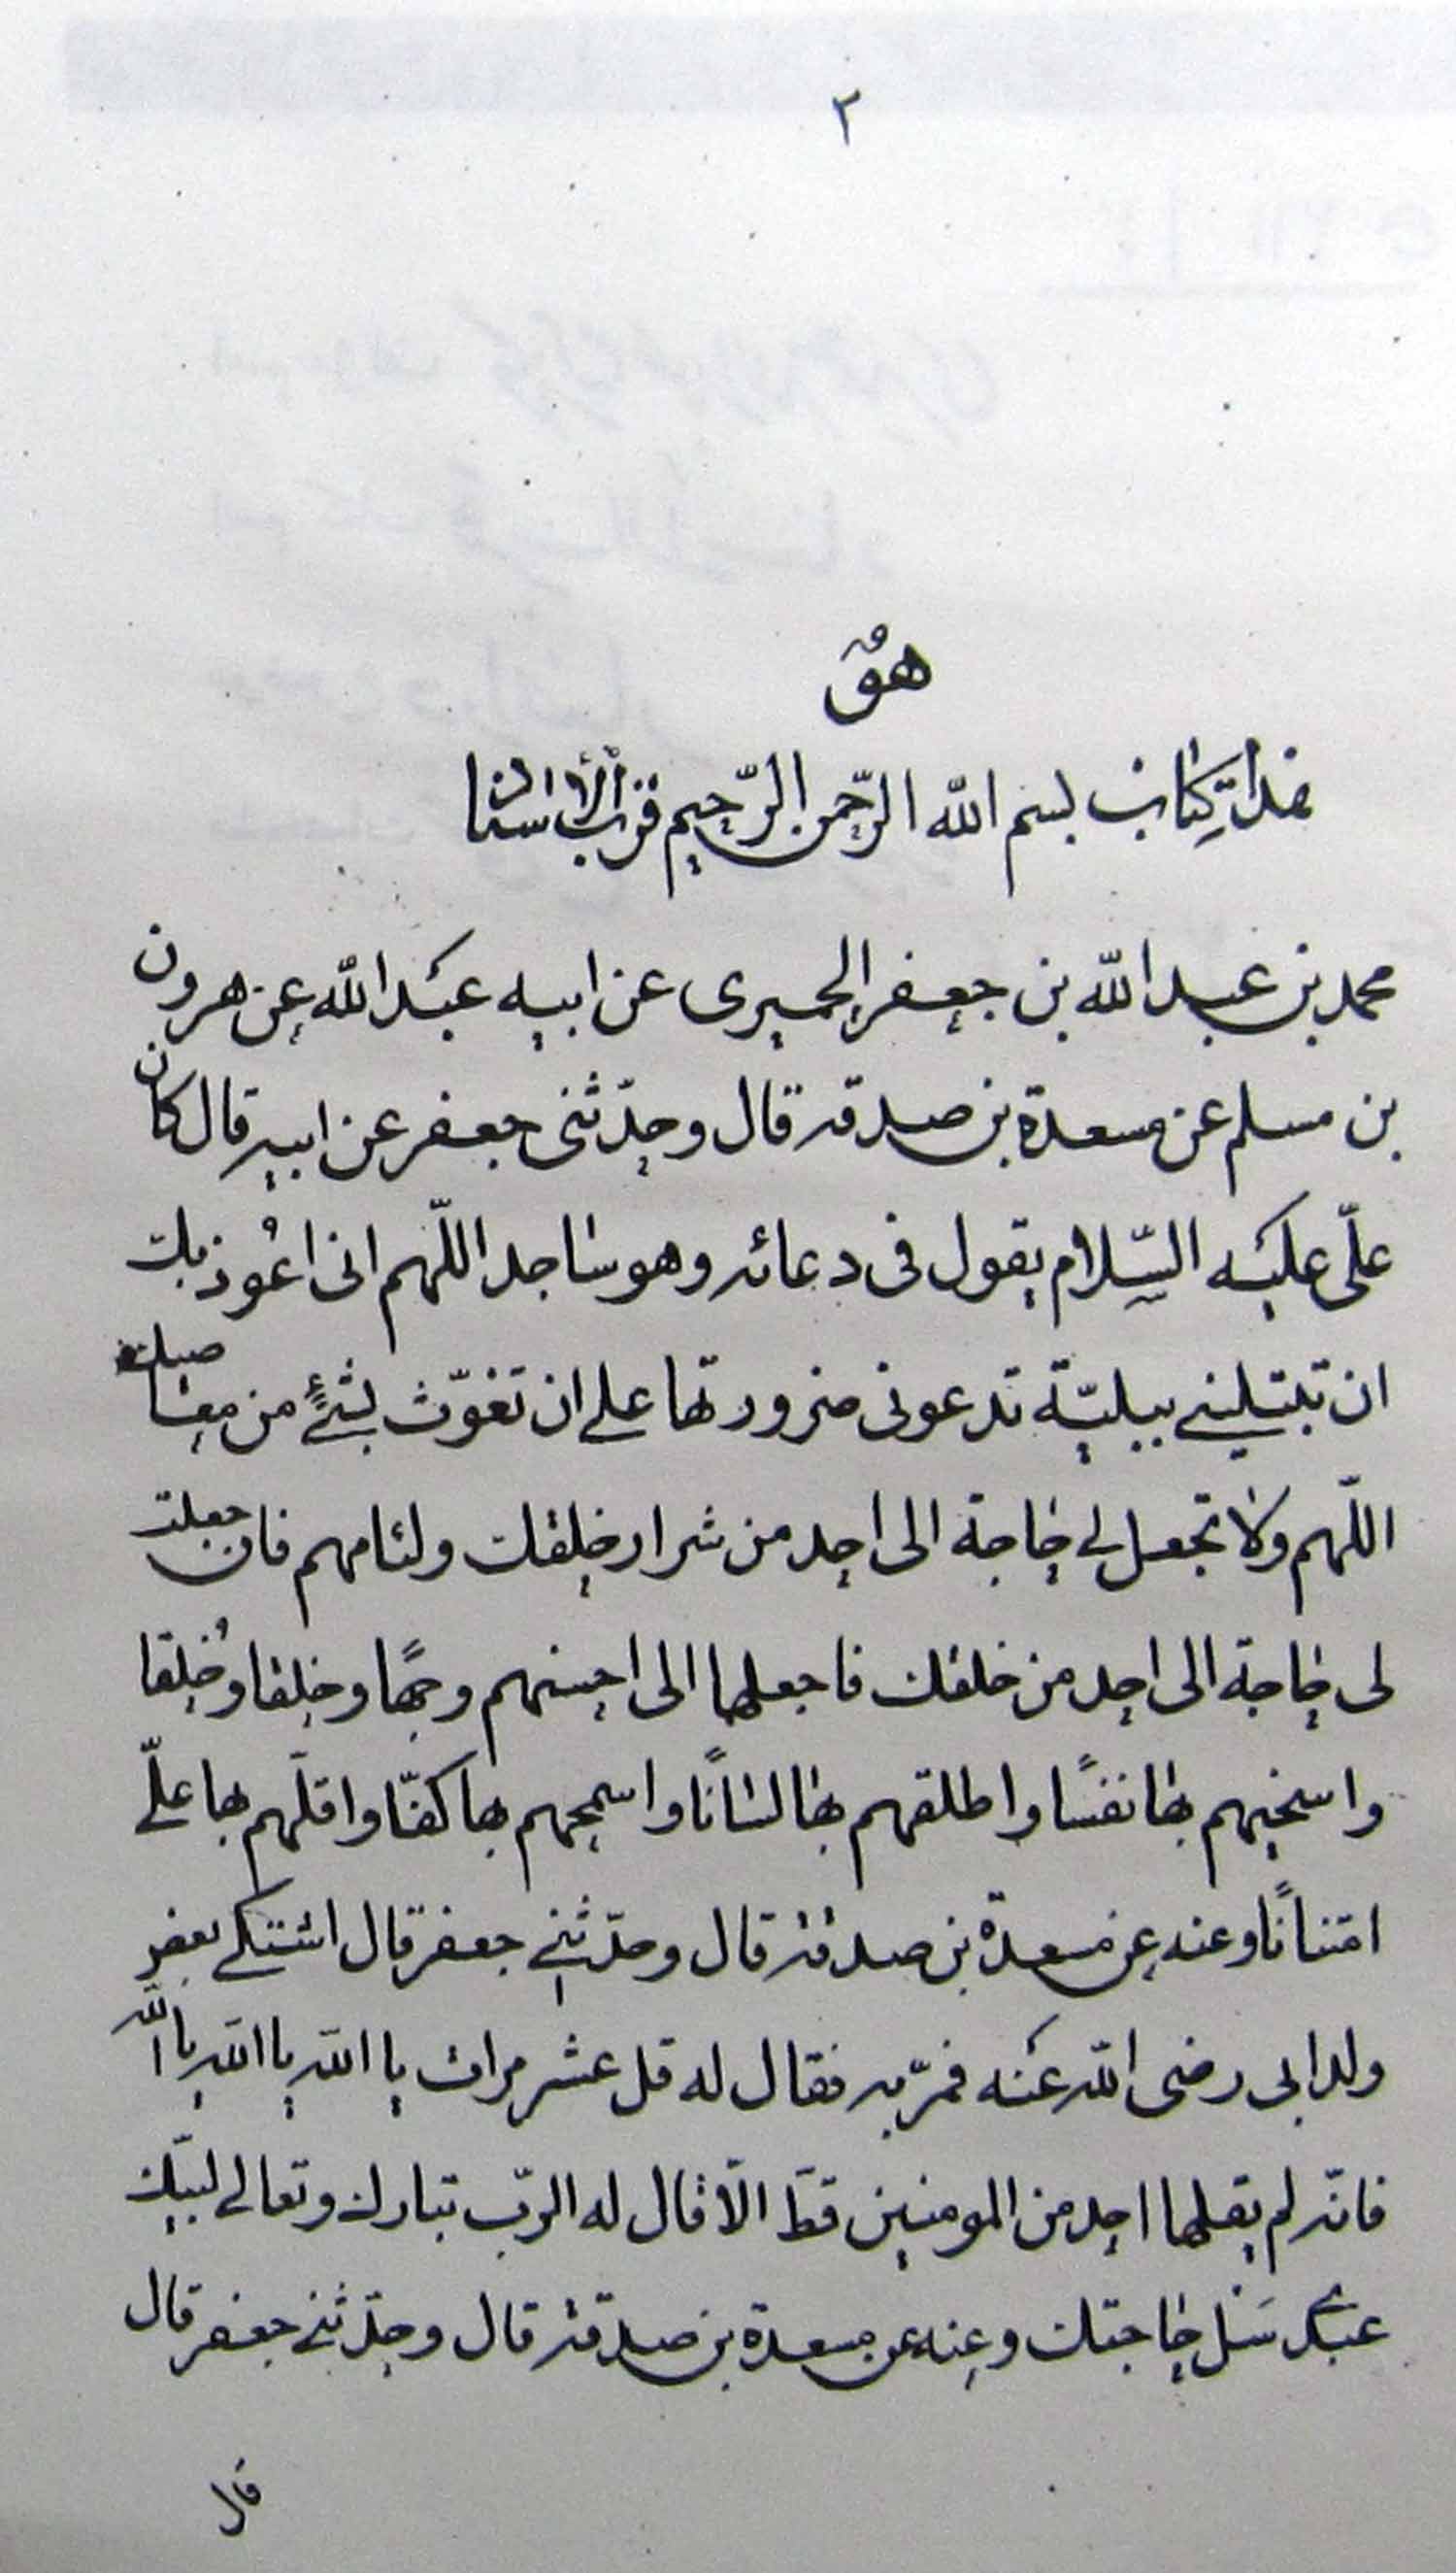 ٢
هو
هذا كتاب بسم الله الرّحمن الرّحيم قرب الأسناد
محمد بن عبدالله بن جعفر الحميرى عن ابيه عبدالله عن هرون
بن مسلم عن مسعدة بن صدقه قال وحدّثنى جعفر عن ابيه قال كان
علّى عليه السّلام يقول فى دعائه وهو ساجد اللّهم انى اعُوذ بك
ان تبتلينى ببليّة تدعونى ضرورتها على ان تغوّث بشئٍ من معاصيك
اللّهم ولا تجعل لى حاجة الى احد من شرار خلقك ولئامهم فان جعلت
لى حاجة الى احد من خلقك فاجعلها الى احسنهم وجهًا وخلقا وخُلقا
واسخيهم بها نفسًا واطلقهم بها لسانًا واسمحهم بها كفّا واقلّهم بها علّى
امتنانًا وعنه عن مسعدة بن صدقه قال وحدّثنى جعفر قال اشتكى بعض
ولد ابى رضى الله عنه فمرّ به فقال له قل عشر مرات يا الله يا الله يا الله
فانّه لم يقلها احد من المومنين قطّ الّا قال له الربّ تبارك وتعالى لبيّك
عبدى سَل حاجتك وعنه عن مسعدة بن صدقه قال وحدّثنى جعفر قال
قال